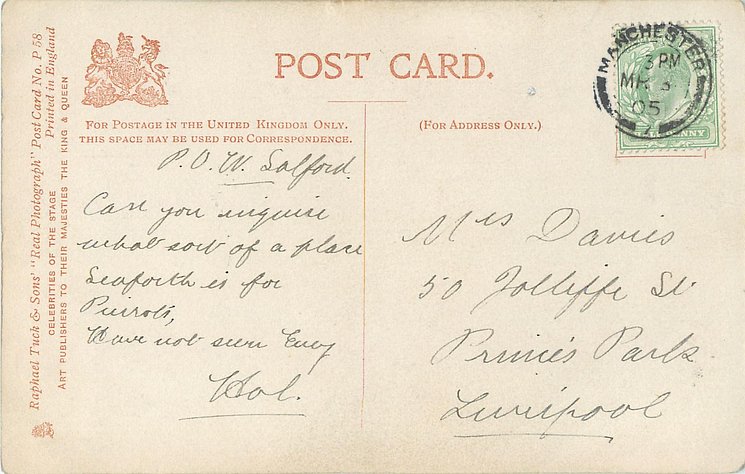 Raphael Tuck & Sons' "Real Photograph" Post Card No. P 58
Printed in England
CELEBRITIES OF THE STAGE
ART PUBLISHERS TO THEIR MAJESTIES THE KING & QUEEN
POST CARD.
FOR POSTAGE IN THE UNITED KINGDOM ONLY.
THIS SPACE MAY BE USED FOR CORRESPONDENCE.
(FOR ADDRESS ONLY.)
MANCHESTER
3 PM
MR 3
05
P.O.W. Salford.
Can you inquire
what sort of a place
Seaforth is for
Pierrots,
Have not seen
Hol.
Mrs Davies
50 Jolliffe St
Princes Park
Liverpool